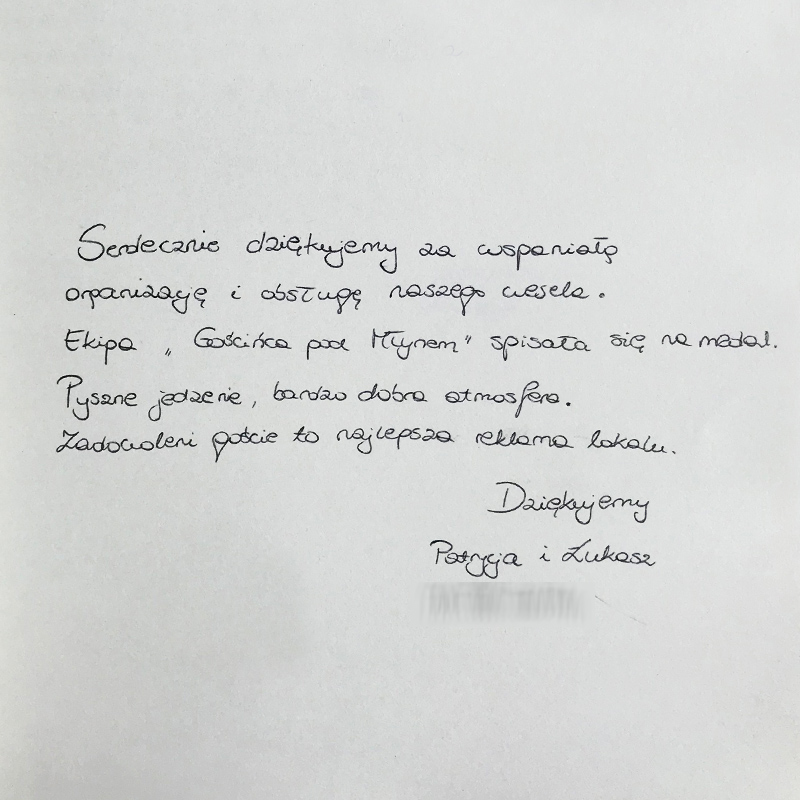 Serdecznie dziękujemy za wspaniałą
organizację i obsługę naszego wesela.
Ekipa „Gościńca pod Młynem" spisała się na medal.
Pyszne jedzenie, bardzo dobra atmosfera.
Zadowoleni goście to najlepsza reklama lokalu.
Dziękujemy
Patrycja i Łukasz